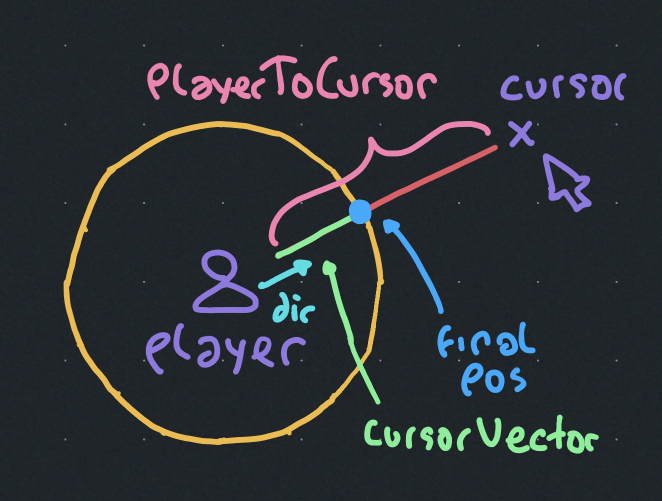 PlayerToCursor
cursor
x
player
dir
final
pos
cursorVector